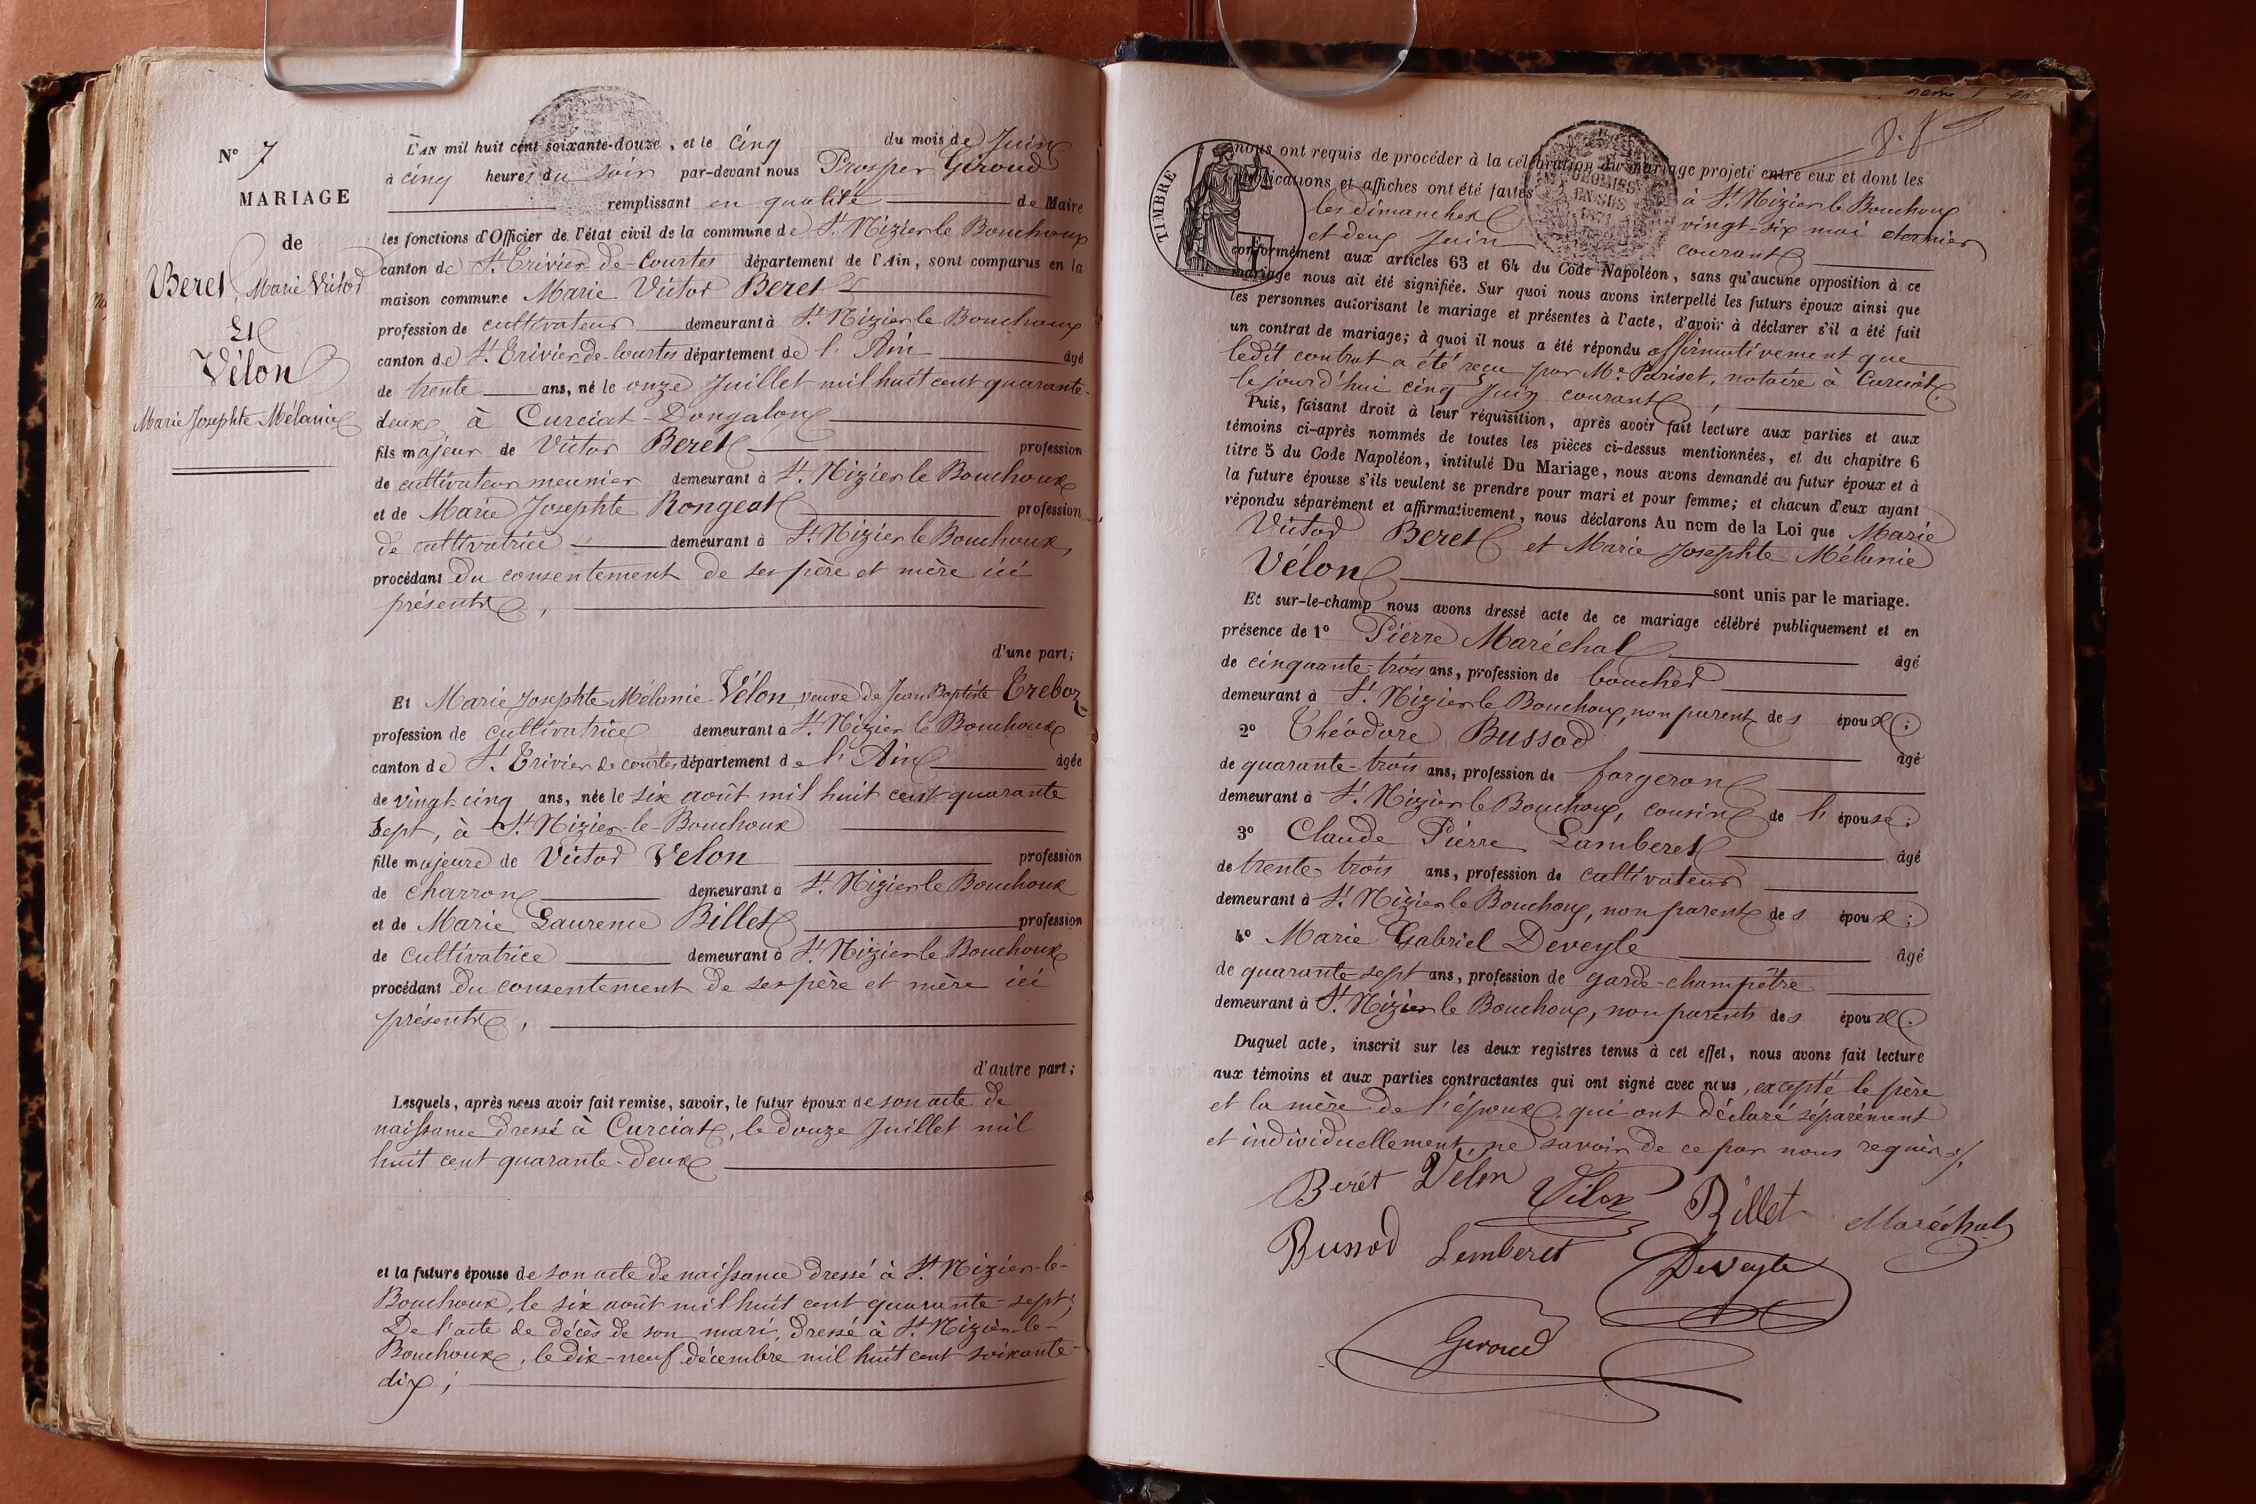 N° 7
MARIAGE
de
Beret, Marie Victor
Et
Vélon
Marie Josephte Mélanie
L'AN mil huit cent soixante-douze, et le cinq du mois de Juin
à cinq heures du soir par-devant nous Prosper Giroud
remplissant en qualité de Maire
les fonctions d'Officier de l'état civil de la commune de St. Nizier le Bouchoux
canton de St. Trivier-de-Courtes département de l'Ain, sont comparus en la
maison commune Marie Victor Beret
profession de cultivateur demeurant à St. Nizier le Bouchoux
canton de St. Trivier-de-Courtes département de l'Ain âgé
de trente ans, né le onze Juillet mil huit cent quarante-
deux à Curciat-Dongalon
fils majeur de Victor Beret profession
de cultivateur meunier demeurant à St. Nizier le Bouchoux
et de Marie Josephte Rongeat profession
de cultivatrice demeurant à St. Nizier le Bouchoux,
procédant du consentement de ses père et mère ici
présents,
d'une part;
Et Marie Josephte Mélanie Vélon, veuve de Jean Baptiste Treboz
profession de cultivatrice demeurant à St. Nizier le Bouchoux
canton de St. Trivier de courtes département de l'Ain âgée
de vingt-cinq ans, née le six août mil huit cent quarante
sept, à St. Nizier-le-Bouchoux
fille majeure de Victor Velon profession
de charron demeurant à St. Nizier le Bouchoux
et de Marie Laurence Billet profession
de cultivatrice demeurant à St. Nizier le Bouchoux
procédant du consentement de ses père et mère ici
présents,
d'autre part;
Lesquels, après nous avoir fait remise, savoir, le futur époux de son acte de
naissance dressé à Curciat, le douze Juillet mil
huit cent quarante-deux
et la future épouse de son acte de naissance dressé à St. Nizier-le-
Bouchoux, le six août mil huit cent quarante-sept;
De l'acte de décès de son mari, dressé à St. Nizier-le-
Bouchoux, le dix-neuf décembre mil huit cent soixante-
dix;
TIMBRE
nous ont requis de procéder à la célébration du mariage projeté entre eux et dont les
publications et affiches ont été faites à St. Nizier le Bouchoux
les dimanches vingt-six mai dernier
et deux Juin courant
conformément aux articles 63 et 64 du Code Napoléon, sans qu'aucune opposition à ce
mariage nous ait été signifiée. Sur quoi nous avons interpellé les futurs époux ainsi que
les personnes autorisant le mariage et présentes à l'acte, d'avoir à déclarer s'il a été fait
un contrat de mariage; à quoi il nous a été répondu affirmativement que
ledit contrat a été reçu par Me. Pariset, notaire à Curciat
le jourd'hui cinq Juin courant,
Puis, faisant droit à leur réquisition, après avoir fait lecture aux parties et aux
témoins ci-après nommés de toutes les pièces ci-dessus mentionnées, et du chapitre 6
titre 5 du Code Napoléon, intitulé Du Mariage, nous avons demandé au futur époux et à
la future épouse s'ils veulent se prendre pour mari et pour femme; et chacun d'eux ayant
répondu séparément et affirmativement, nous déclarons Au nom de la Loi que Marie
Victor Beret et Marie Josephte Mélanie
Vélon sont unis par le mariage.
Et sur-le-champ nous avons dressé acte de ce mariage célébré publiquement et en
présence de 1° Pierre Maréchal âgé
de cinquante-trois ans, profession de boucher
demeurant à St. Nizier le Bouchoux, non parent des époux;
2° Théodore Bussod âgé
de quarante-trois ans, profession de forgeron
demeurant à St. Nizier le Bouchoux, cousin de l'épouse;
3° Claude Pierre Lamberet âgé
de trente trois ans, profession de cultivateur
demeurant à St. Nizier le Bouchoux, non parent des époux;
4° Marie Gabriel Deveyle âgé
de quarante-sept ans, profession de garde-champêtre
demeurant à St. Nizier le Bouchoux, non parents des époux.
Duquel acte, inscrit sur les deux registres tenus à cet effet, nous avons fait lecture
aux témoins et aux parties contractantes qui ont signé avec nous, excepté le père
et la mère de l'époux, qui ont déclaré séparément
et individuellement ne savoir de ce par nous requis./.
Berét Vélon Vélon Billet Maréchal
Bussod Lamberet DeVeyle
Giroud